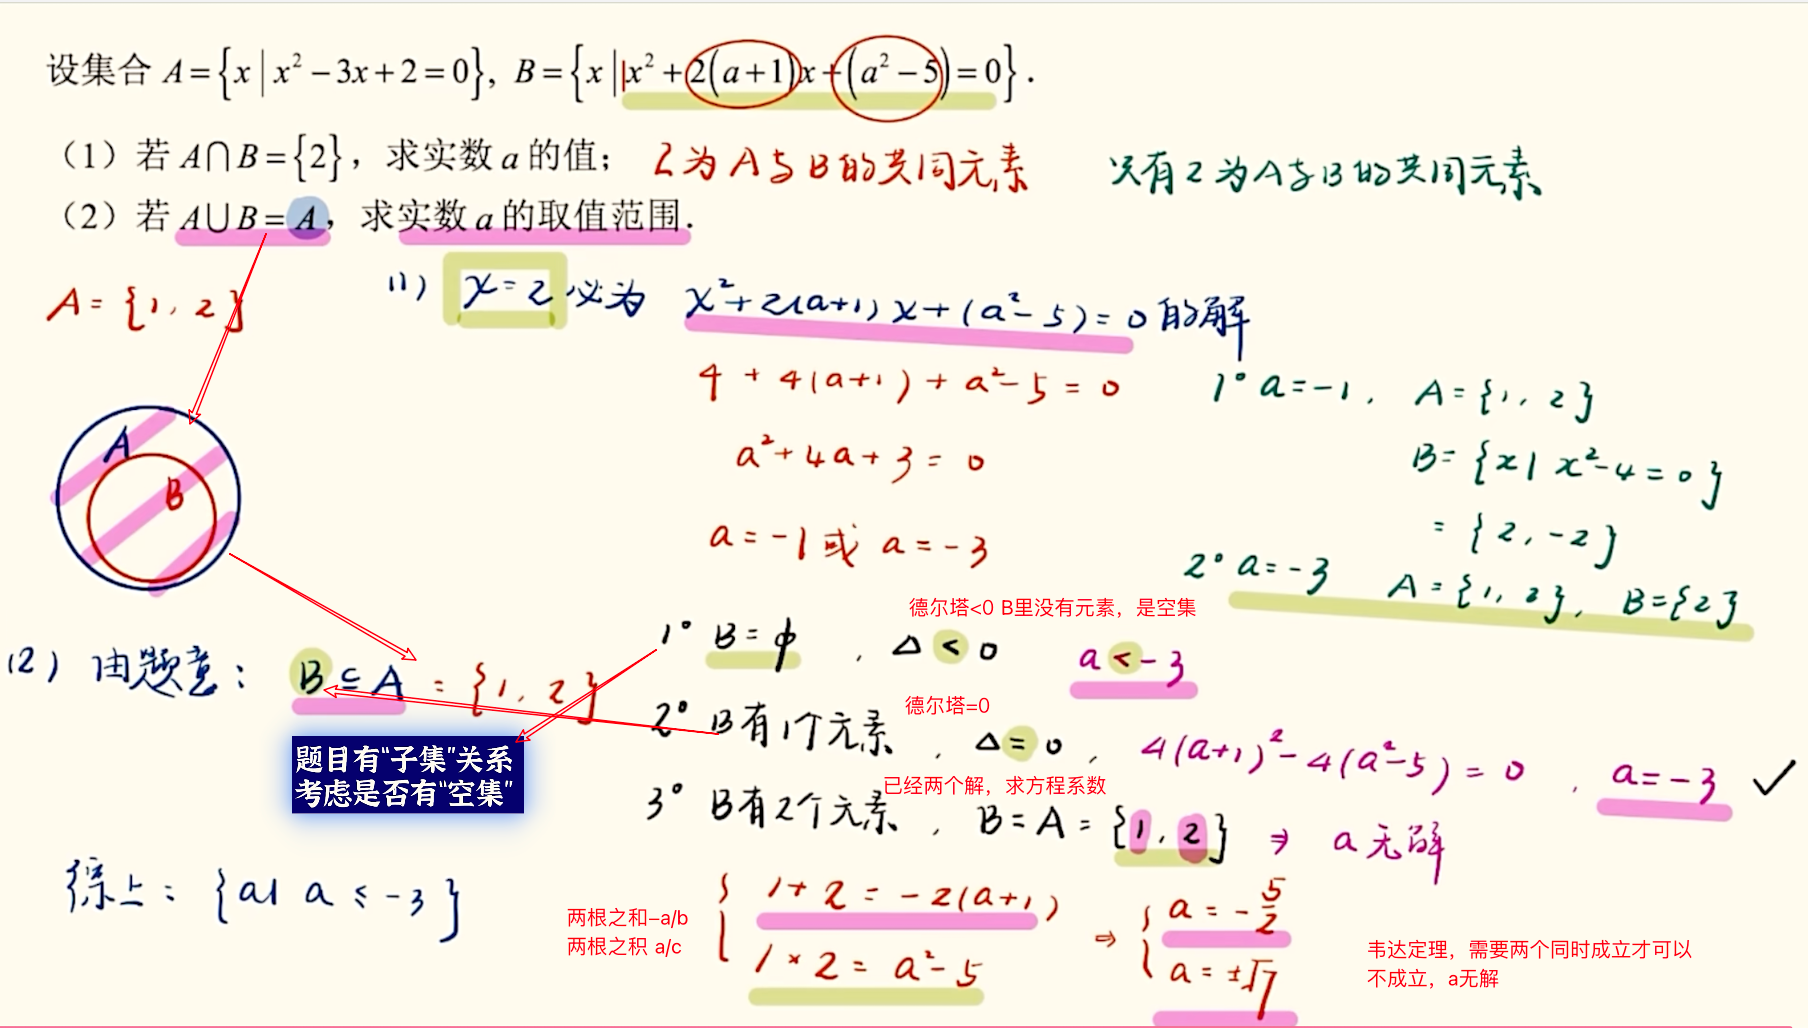 设集合 A={x|x²-3x+2=0}, B={x|x²+2(a+1)x+(a²-5)=0}.
（1）若 A∩B={2}，求实数 a 的值； 2为A与B的共同元素 只有2为A与B的共同元素
（2）若 A∪B=A，求实数 a 的取值范围.
A={1, 2}
(1) x=2 必为 x²+2(a+1)x+(a²-5)=0 的解
4+4(a+1)+a²-5=0
a²+4a+3=0
a=-1 或 a=-3
1° a=-1, A={1, 2}
B={x| x²-4=0}
={2, -2}
2° a=-3 A={1, 2}, B={2}
A
B
(2) 由题意： B⊆A={1, 2}
题目有“子集”关系
考虑是否有“空集”
德尔塔<0 B里没有元素，是空集
1° B=ϕ , Δ<0 a<-3
德尔塔=0
2° B有1个元素 , Δ=0 , 4(a+1)²-4(a²-5)=0 , a=-3 ✓
已经两个解，求方程系数
3° B有2个元素 , B=A={1, 2} ⇒ a无解
综上：{a| a≤-3}
两根之和-a/b
两根之积 a/c
{ 1+2=-2(a+1)
1×2=a²-5
⇒ { a=-5/2
a=±√7
韦达定理，需要两个同时成立才可以
不成立，a无解